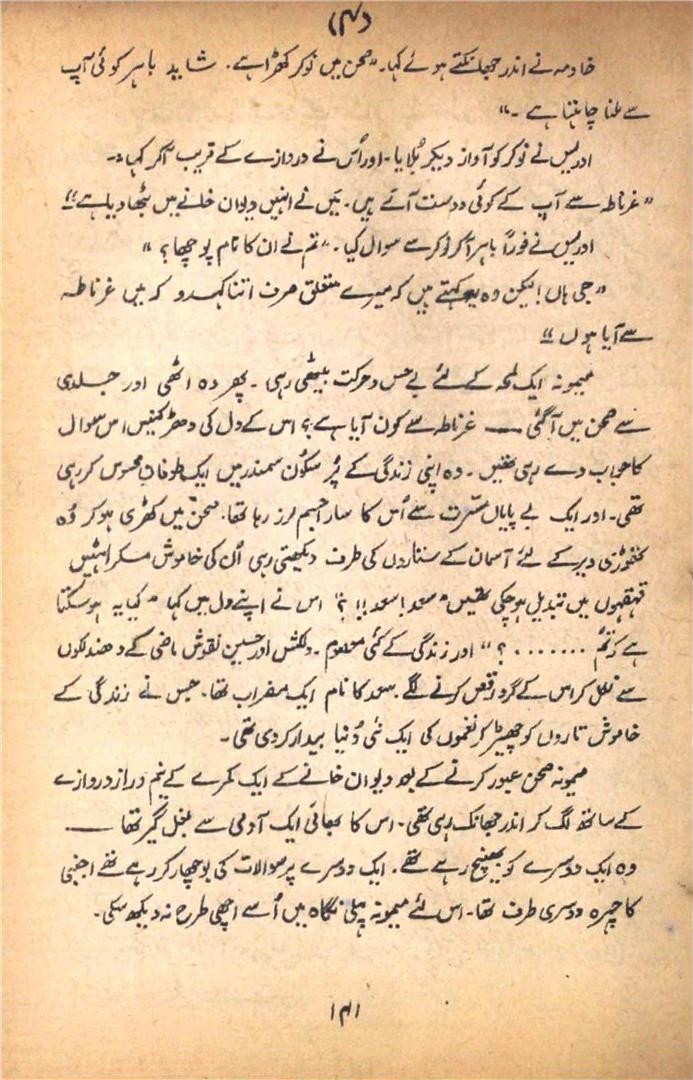 (۴)
خادمہ نے اندر جھانکتے ہوئے کہا۔ "صحن میں نوکر کھڑا ہے۔ شاید باہر کوئی آپ
سے ملنا چاہتا ہے۔"
ادریس نے نوکر کو آواز دیکر بُلایا۔ اور اُس نے دروازے کے قریب آکر کہا :۔
"غرناطہ سے آپ کے کوئی دوست آئے ہیں۔ میں نے انہیں دیوان خانے میں بٹھا دیا ہے"
ادریس نے فوراً باہر آکر نوکر سے سوال کیا۔ "تم نے ان کا نام پوچھا؟"
"جی ہاں! لیکن وہ یہ کہتے ہیں کہ میرے متعلق صرف اتنا کہدو کہ میں غرناطہ
سے آیا ہوں"
میمونہ ایک لمحہ کے لئے بے حس و حرکت بیٹھی رہی۔ پھر وہ اٹھی اور جلدی
سے صحن میں آگئی —— غرناطہ سے کون آیا ہے؟ اس کے دل کی دھڑکنیں اس سوال
کا جواب دے رہی تھیں۔ وہ اپنی زندگی کے پُر سکون سمندر میں ایک طوفان محسوس کر رہی
تھی۔ اور ایک بے پایاں مسّرت سے اُس کا سارا جسم لرز رہا تھا۔ صحن میں کھڑی ہو کر وُہ
تھوڑی دیر کے لئے آسمان کے ستاروں کی طرف دیکھتی رہی اُس کی خاموش مسکراہٹیں
قہقہوں میں تبدیل ہو چکی تھیں "سعد! سعد!! ؟" اس نے اپنے دل میں کہا "کیا یہ ہو سکتا
ہے کہ تم ....... ؟" اور زندگی کے کئی معلوم۔ دلکش اور حسین نقوش ماضی کے دھندلکوں
سے نکل کر اس کے گرد رقص کرنے لگے۔ سعد کا نام ایک مضراب تھا۔ جس نے زندگی کے
خاموش تاروں کو چھیڑ کر نغموں کی ایک نئی دُنیا بیدار کر دی تھی۔
میمونہ صحن عبور کرنے کے بعد دیوان خانے کے ایک کمرے کے نیم دراز دروازے
کے ساتھ لگ کر اندر جھانک رہی تھی۔ اس کا بھائی ایک آدمی سے بغل گیر تھا ——
وہ ایک دوسرے کو بھینچ رہے تھے۔ ایک دوسرے پر سوالات کی بوچھاڑ کر رہے تھے اجنبی
کا چہرہ دوسری طرف تھا۔ اس لئے میمونہ پہلی نگاہ میں اُسے اچھی طرح نہ دیکھ سکی۔
۱۴۱